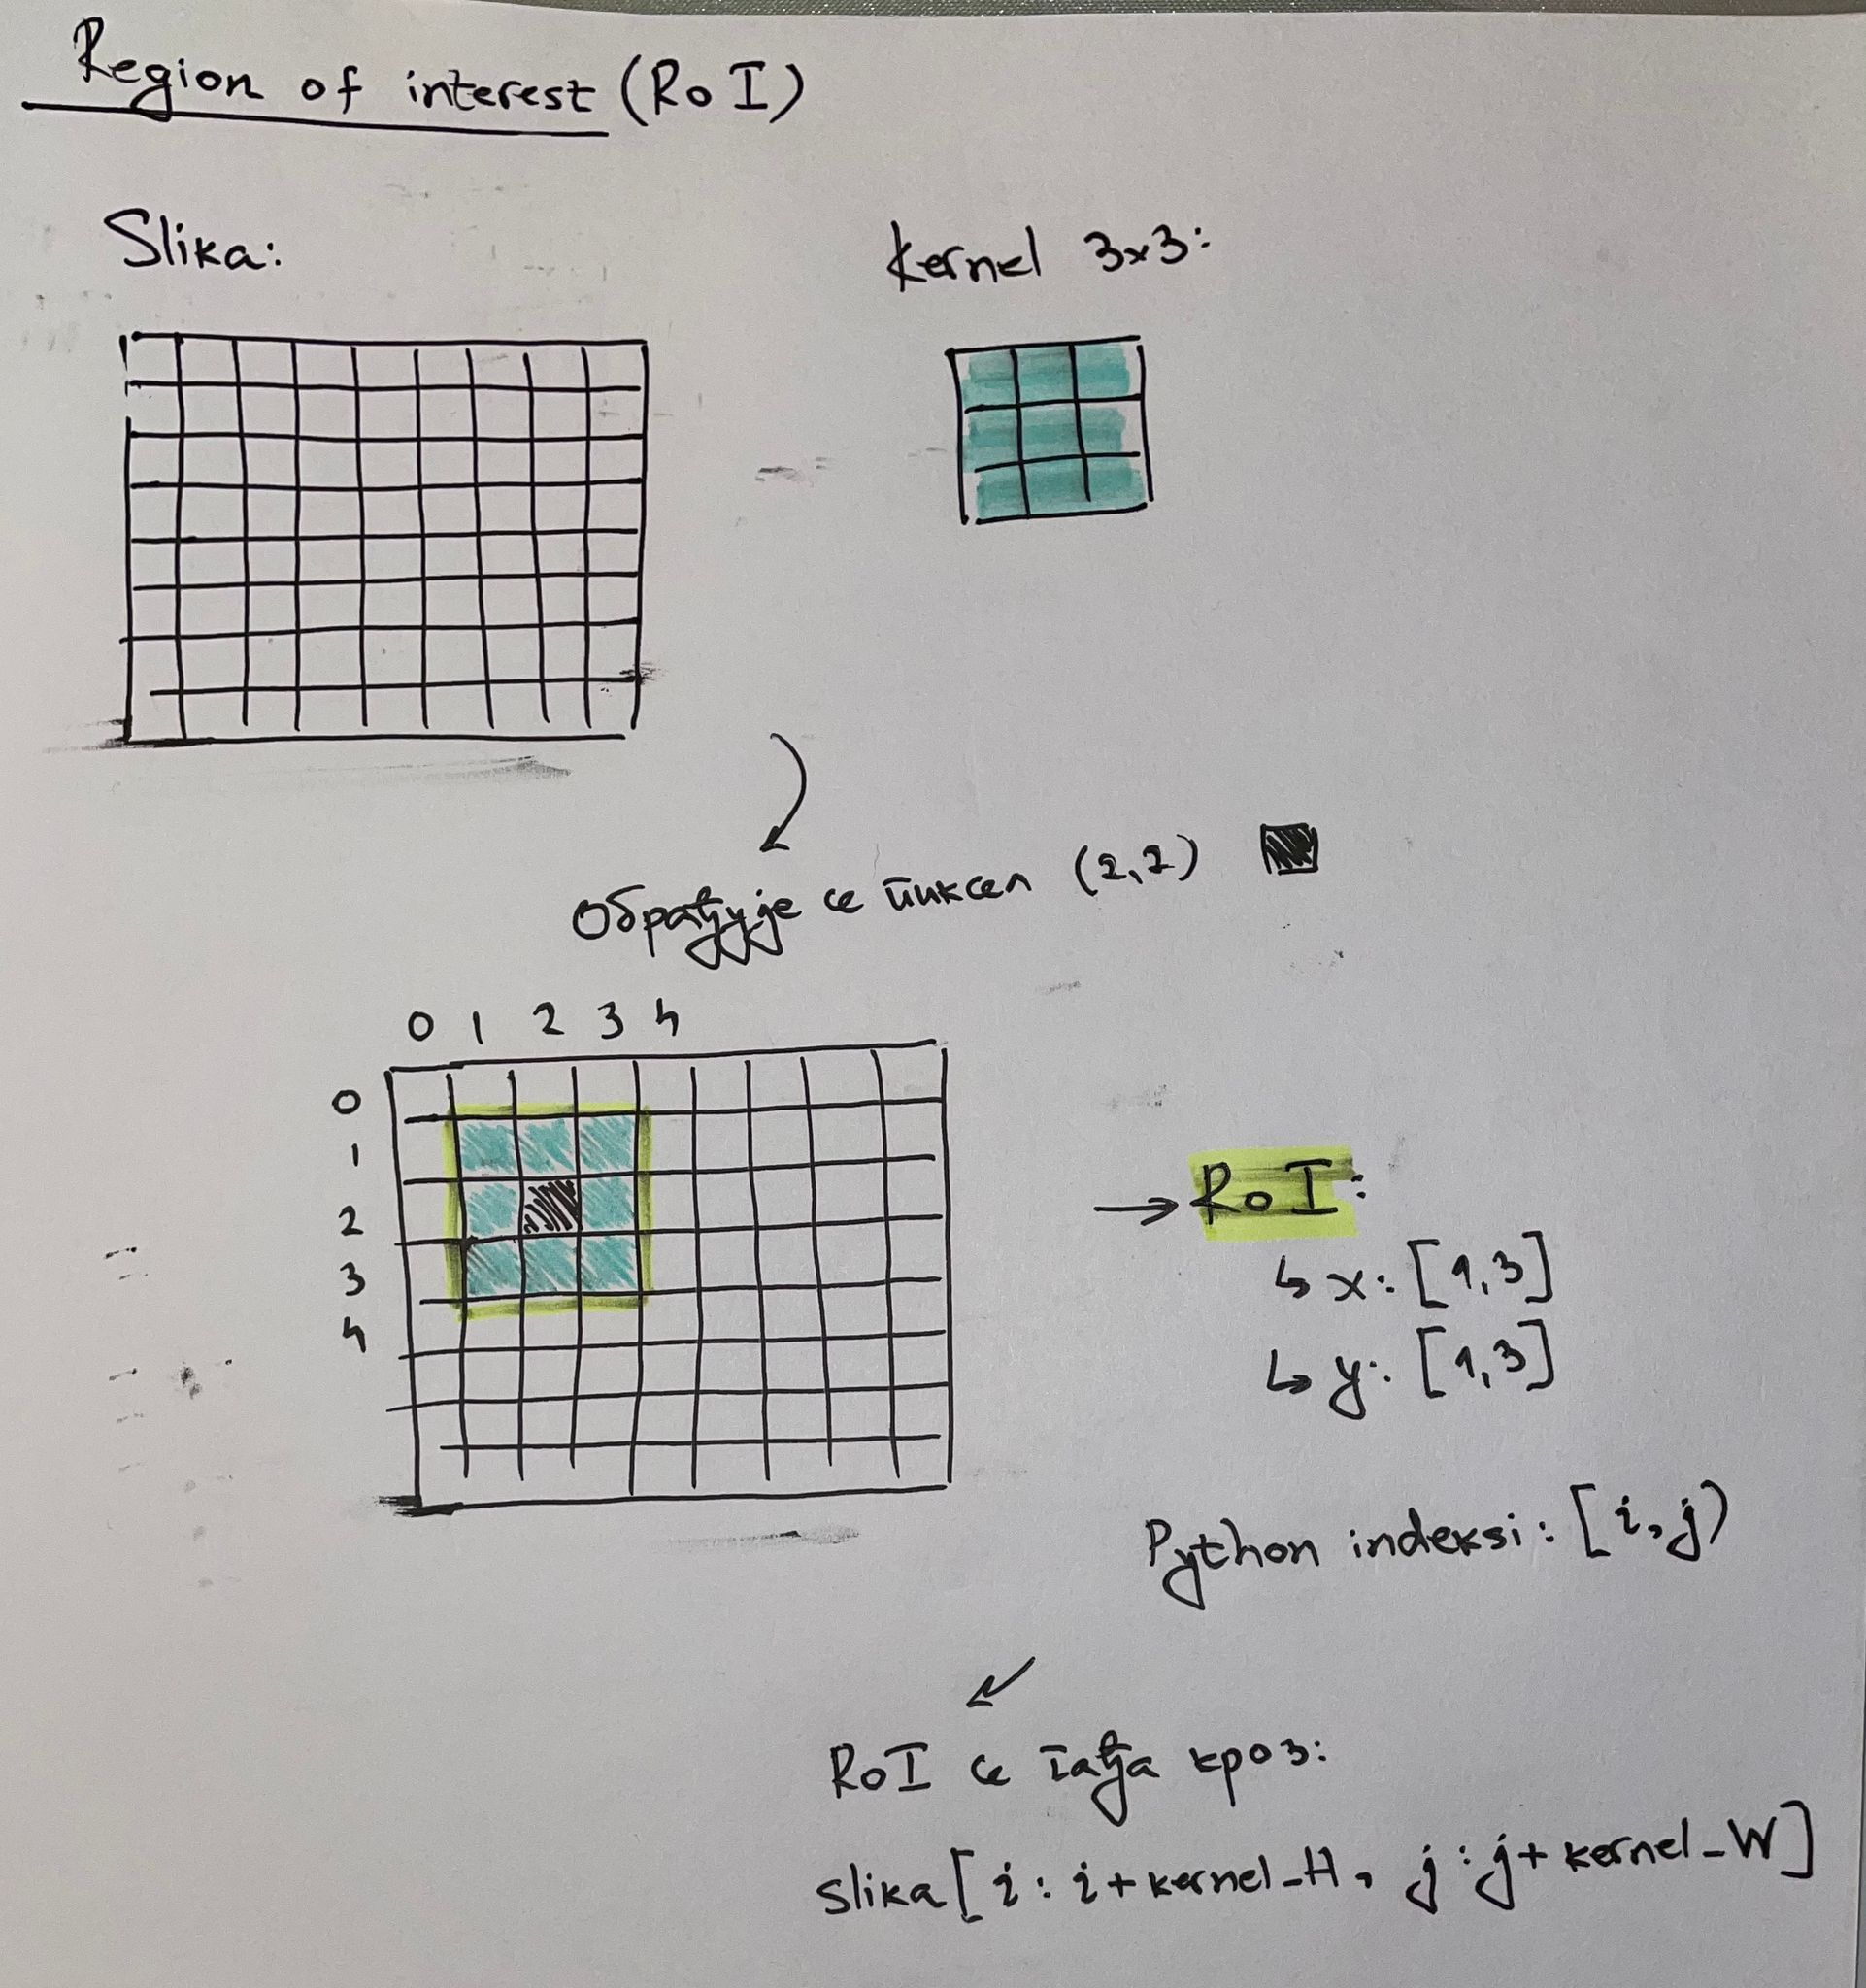 Region of interest (RoI)
Slika:
Kernel 3x3:
Обрађује се пиксел (2,2)
0 1 2 3 4
0
1
2
3
4
→ RoI:
↳ x: [1,3]
↳ y: [1,3]
Python indeksi: [i,j)
RoI се гађа кроз:
slika[i:i+kernel_H, j:j+kernel_W]